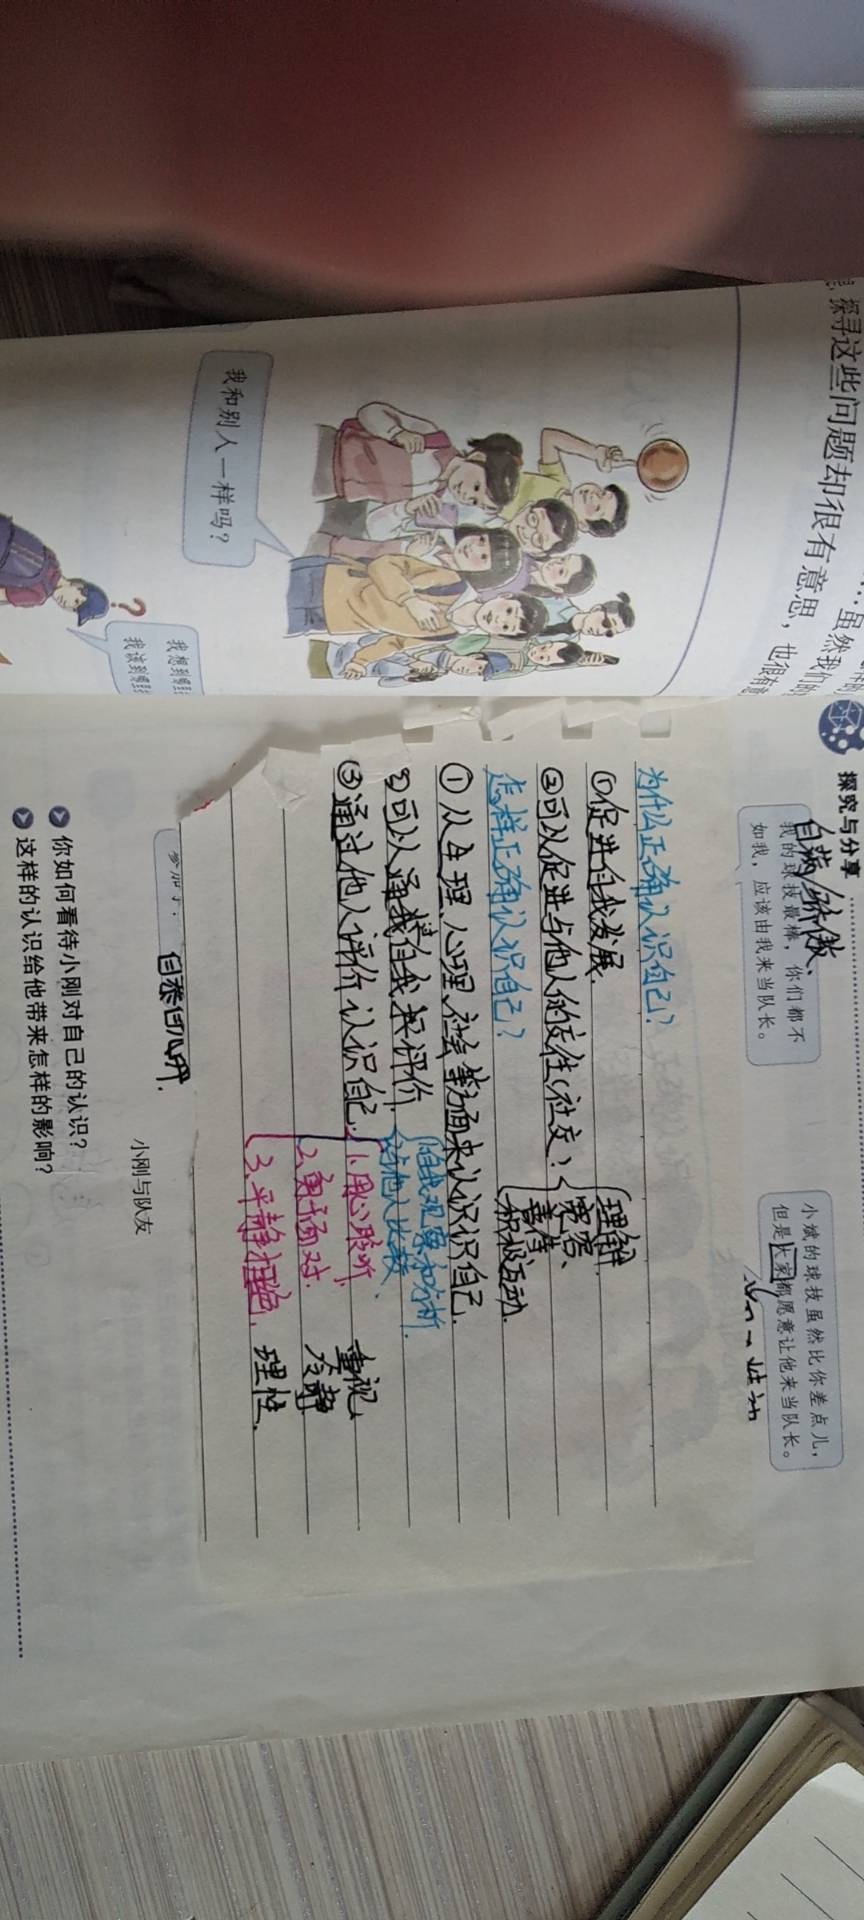 探寻这些问题却很有意思，也很有意
虽然我们的
我和别人一样吗？
我想到哪里
我该到哪里
探究与分享
我的球技最棒，你们都不
如我，应该由我来当队长。
自满/骄傲、
小斌的球技虽然比你差点儿，
但是大家都愿意让他来当队长。
为什么正确认识自己？
①促进自我发展.
②可以促进与他人的交往(社交)？
理解.
宽容、
善待
积极互动.
怎样正确认识自己？
①从生理、心理、社会等方面来认识识自己.
②可以通过自我评价.
自我观察和分析.
与他人比较.
③通过他人评价认识自己.
1.用心聆听.
2.勇于面对.
3.平静拒绝.
重视
冷静
理性.
小刚与队友
你如何看待小刚对自己的认识？
这样的认识给他带来怎样的影响？